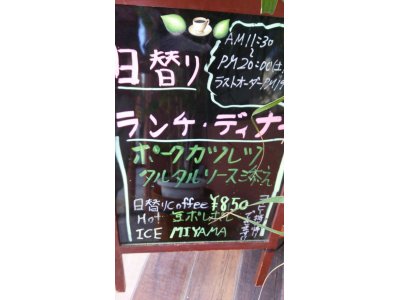 日替り
AM11:30
〜
PM20:00(土
ラストオーダーPM19
ランチ・ディナー
ポークカツレツ
タルタルソース添え
日替りCoffee ¥850
Hot 豆ポレポレ
ICE MIYAMA